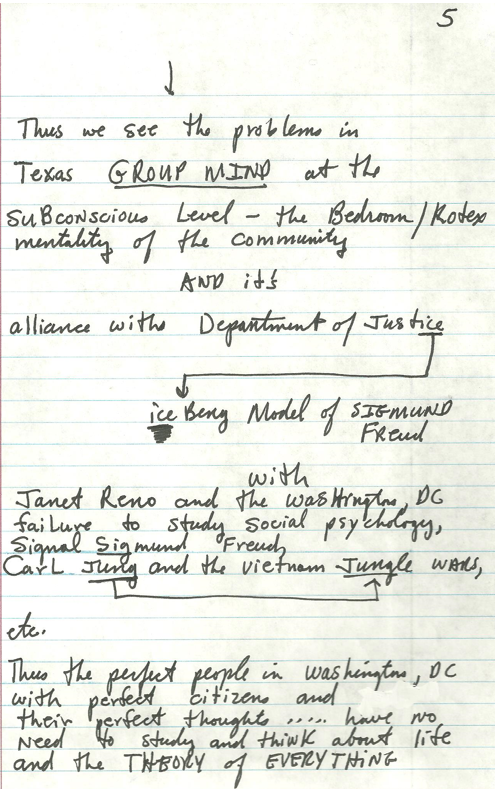 5
Thus we see the problems in
Texas GROUP MIND at the
SUBCONSCIOUS Level - the Bedroom/Kotex
mentality of the community
AND it's
alliance withs Department of Justice
ice Berg Model of SIGMUND
Freud
with
Janet Reno and the Washington, DC
failure to study social psychology,
Signal Sigmund Freud,
CarL Jung and the vietnam Jungle WARS,
etc.
Thus the perfect people in Washington, DC
with perfect citizens and
their perfect thoughts ..... have no
Need to study and think about life
and the THEORY of EVERYTHING